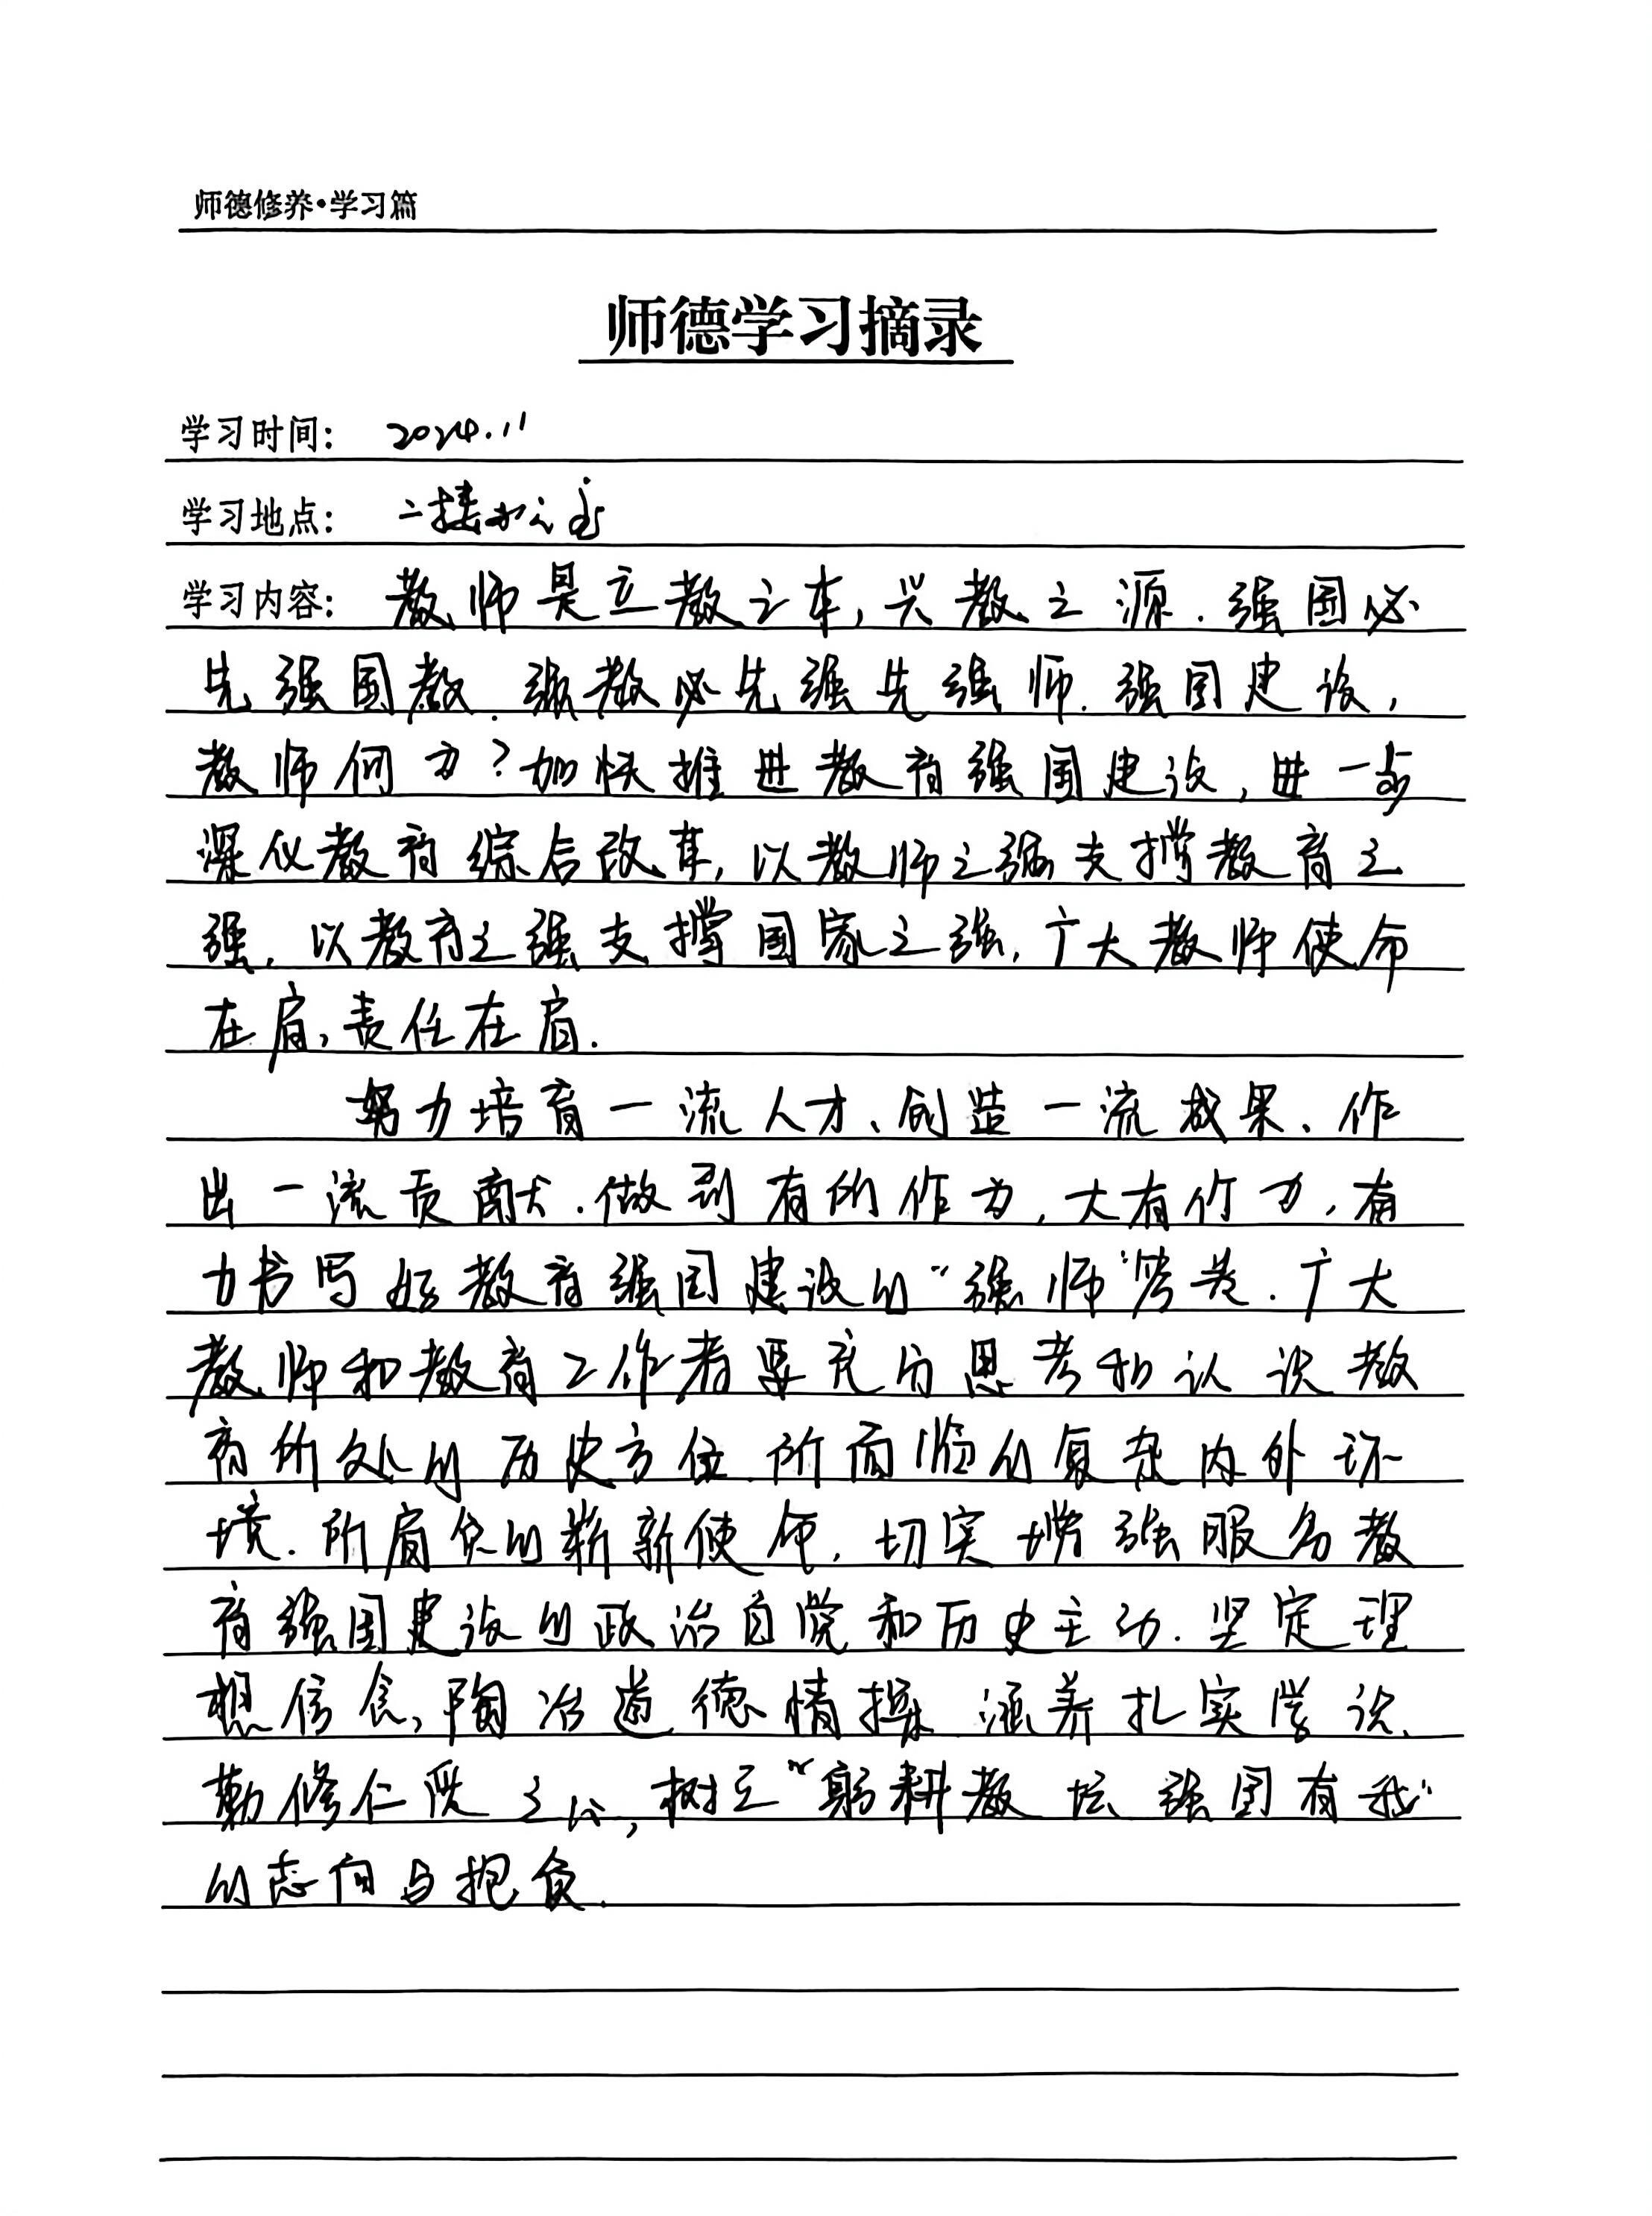 师德修养·学习篇
师德学习摘录
学习时间: 2024.11
学习地点: 二楼办公室
学习内容: 教师是立教之本,兴教之源.强国必
先强国教.强教必先强先强师.强国建设,
教师何为?加快推进教育强国建设,进一步
深化教育综合改革,以教师之强支撑教育之
强,以教育之强支撑国家之强,广大教师使命
在肩,责任在肩.
努力培育一流人才、创造一流成果、作
出一流贡献.做到有所作为,大有作为,有
力书写好教育强国建设的“强师”答卷.广大
教师和教育工作者要充分思考和认识教
育所处的历史方位.所面临的复杂内外环
境.所肩负的崭新使命,切实增强服务教
育强国建设的政治自觉和历史主动.坚定理
想信念,陶冶道德情操.涵养扎实学识、
勤修仁爱之心,树立“躬耕教坛 强国有我”
的志向与抱负.